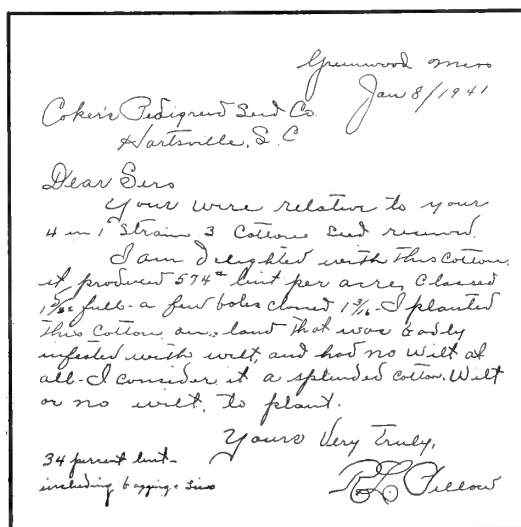 Greenwood Miss
Jan 8/1941
Coker's Pedigreed Seed Co.
Hartsville, S.C
Dear Sirs
Your wire relative to your
4 in 1 Strain 3 Cotton Seed received.
I am delighted with this cotton,
it produced 574# lint per acre, Classed
1 5/32 full - a few bales classed 1 3/16 - I planted
this cotton on land that was badly
infested with wilt, and had no wilt at
all - I consider it a splended cotton. Wilt
or no wilt, to plant.
Yours Very Truly,
34 percent lint -
including bagging &
R L Pillow